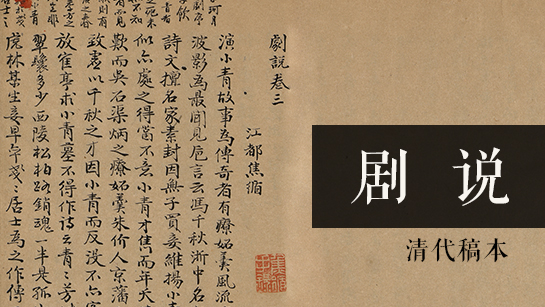 劇説卷三
江都焦循
演小青故事為傳奇者有療妬羹風流
波影為最聞見卮言云馮千秋浙中名
詩文擅名家素封因無子買妾維揚小
似處之得當不意小青才雋而年夭
歎而吳石渠炳之療妬羹朱价人京藩
致盡以千秋之才因小青而反没不
放亭求小青墓不得作詩云青〻芳
翠多少西陵松柏路銷魂一半是孤
虎林某生妾早卒〻居士為之作傳
剧说
清代稿本